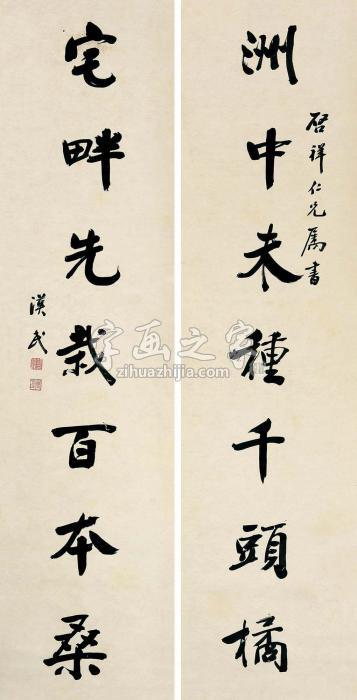 洲中未種千頭橘
啓祥仁兄属書
宅畔先栽百本桑
漢民
字画之家
zihuazhijia.com